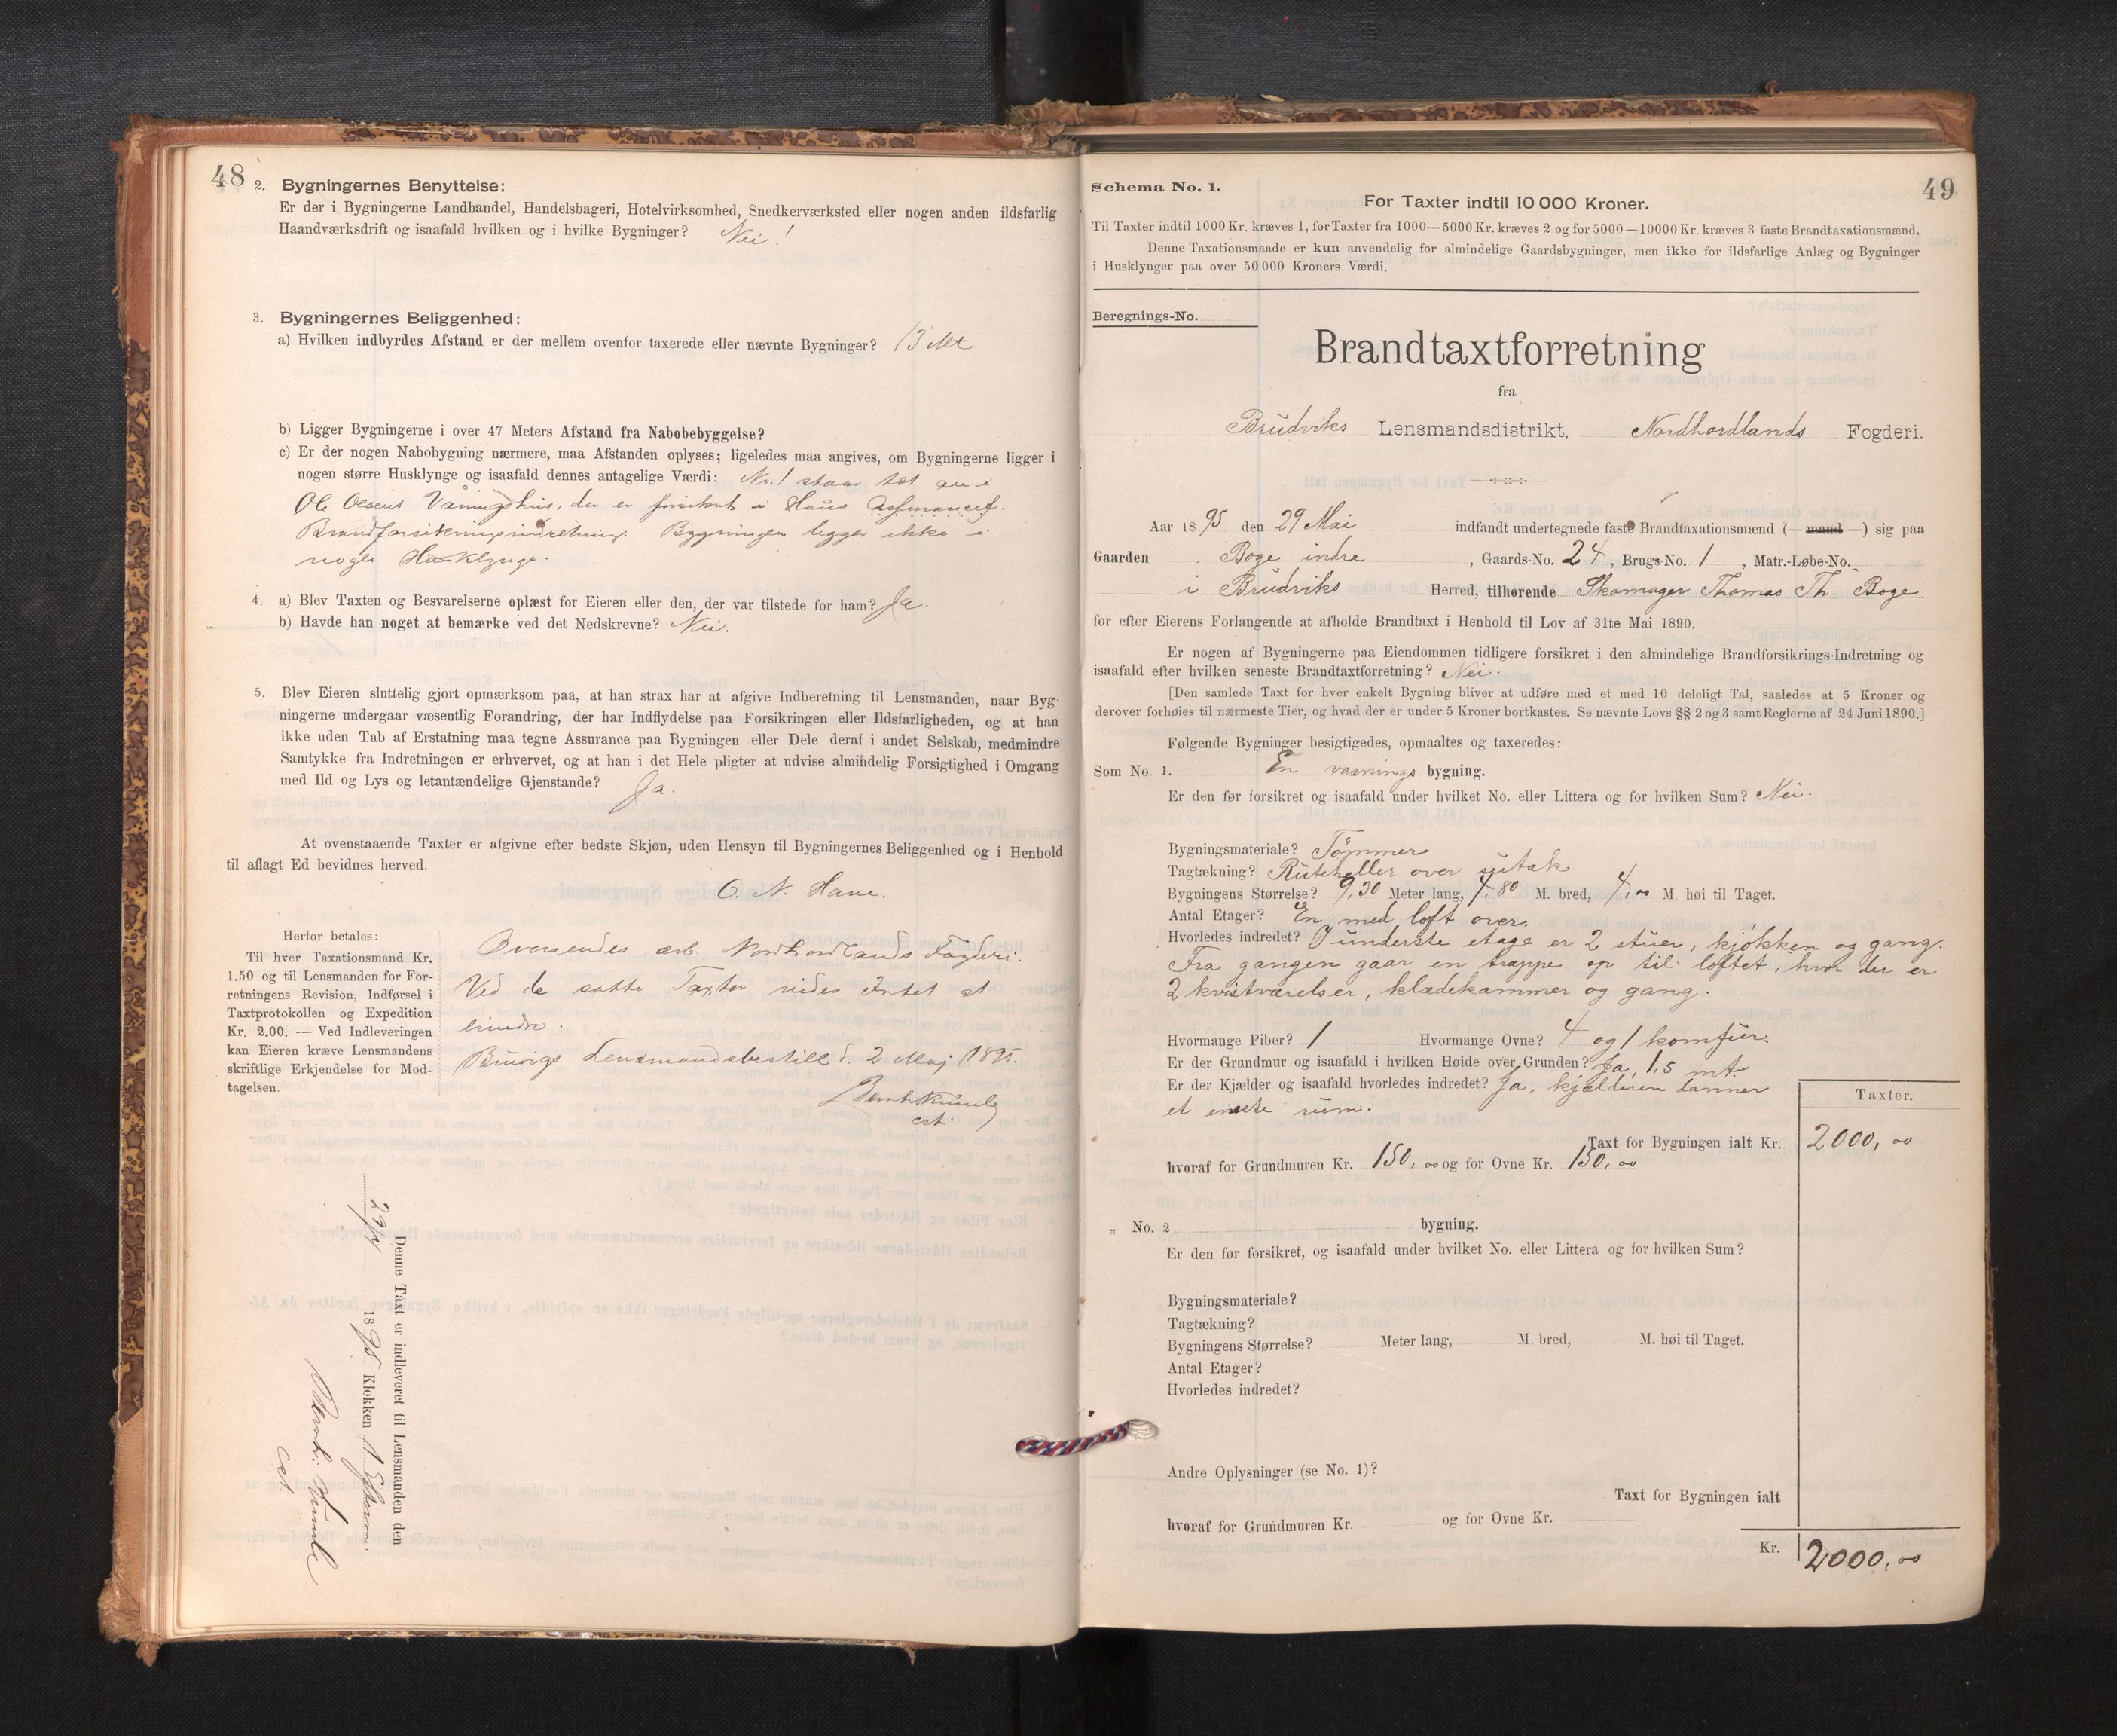 48
2. Bygningernes Benyttelse:
Er der i Bygningerne Landhandel, Handelsbageri, Hotelvirksomhed, Snedkerværksted eller nogen anden ildsfarlig
Haandværksdrift og isaafald hvilken og i hvilke Bygninger? Nei!
3. Bygningernes Beliggenhed:
a) Hvilken indbyrdes Afstand er der mellem ovenfor taxerede eller nævnte Bygninger? 13 Mt.
b) Ligger Bygningerne i over 47 Meters Afstand fra Nabobebyggelse?
c) Er der nogen Nabobygning nærmere, maa Afstanden oplyses; ligeledes maa angives, om Bygningerne ligger i
nogen større Husklynge og isaafald dennes antagelige Værdi: Nr. 1 staar tæt an i
Ole Olsens Våningshus, der er forsikret i Haus Assurancef.
Brandforsikringsindretning. Bygningen ligger ikke i
nogen Husklynge.
4. a) Blev Taxten og Besvarelserne oplæst for Eieren eller den, der var tilstede for ham? Ja.
b) Havde han noget at bemærke ved det Nedskrevne? Nei.
5. Blev Eieren sluttelig gjort opmærksom paa, at han strax har at afgive Indberetning til Lensmanden, naar Byg-
ningerne undergaar væsentlig Forandring, der har Indflydelse paa Forsikringen eller Ildsfarligheden, og at han
ikke uden Tab af Erstatning maa tegne Assurance paa Bygningen eller Dele deraf i andet Selskab, medmindre
Samtykke fra Indretningen er erhvervet, og at han i det Hele pligter at udvise almindelig Forsigtighed i Omgang
med Ild og Lys og letantændelige Gjenstande? Ja.
At ovenstaaende Taxter er afgivne efter bedste Skjøn, uden Hensyn til Bygningernes Beliggenhed og i Henhold
til aflagt Ed bevidnes herved.
O. N. Hane.
Herfor betales:
Til hver Taxationsmand Kr.
1.50 og til Lensmanden for For-
retningens Revision, Indførsel i
Taxtprotokollen og Expedition
Kr. 2.00. — Ved Indleveringen
kan Eieren kræve Lensmandens
skriftlige Erkjendelse for Mod-
tagelsen.
Oversendes ærb. Nordhordlands Fogderi.
Ved de satte Taxter vides Intet at
erindre.
Bruvigs Lensmandsbestill. d. 2 Maj 1895.
cst.
Denne Taxt er indleveret til Lensmanden den
29/4 1895 Klokken 1 Efterm.
cst.
49
Schema No. 1.
For Taxter indtil 10 000 Kroner.
Til Taxter indtil 1000 Kr. kræves 1, for Taxter fra 1000—5000 Kr. kræves 2 og for 5000—10000 Kr. kræves 3 faste Brandtaxationsmænd.
Denne Taxationsmaade er kun anvendelig for almindelige Gaardsbygninger, men ikke for ildsfarlige Anlæg og Bygninger
i Husklynger paa over 50 000 Kroners Værdi.
Beregnings-No.
Brandtaxtforretning
fra
Brudviks Lensmandsdistrikt, Nordhordlands Fogderi.
Aar 1895 den 29 Mai indfandt undertegnede faste Brandtaxationsmænd (— mand —) sig paa
Gaarden Boge indre, Gaards-No. 24, Brugs-No. 1, Matr.-Løbe-No.
i Brudviks Herred, tilhørende Skomager Thomas Th. Boge
for efter Eierens Forlangende at afholde Brandtaxt i Henhold til Lov af 31te Mai 1890.
Er nogen af Bygningerne paa Eiendommen tidligere forsikret i den almindelige Brandforsikrings-Indretning og
isaafald efter hvilken seneste Brandtaxtforretning? Nei.
[Den samlede Taxt for hver enkelt Bygning bliver at udføre med et med 10 deleligt Tal, saaledes at 5 Kroner og
derover forhøies til nærmeste Tier, og hvad der er under 5 Kroner bortkastes. Se nævnte Lovs §§ 2 og 3 samt Reglerne af 24 Juni 1890.]
Følgende Bygninger besigtigedes, opmaaltes og taxeredes:
Som No. 1. En vaanings bygning.
Er den før forsikret og isaafald under hvilket No. eller Littera og for hvilken Sum? Nei.
Bygningsmateriale? Tømmer
Tagtækning? Ruteheller over sutak
Bygningens Størrelse? 9,30 Meter lang, 7,80 M. bred, 4,00 M. høi til Taget.
Antal Etager? En med loft over.
Hvorledes indredet? I underste etage er 2 stuer, kjøkken og gang.
Fra gangen gaar en trappe op til loftet, hvor der er
2 kvistværelser, klædekammer og gang.
Hvormange Piber? 1 Hvormange Ovne? 4 og 1 komfur.
Er der Grundmur og isaafald i hvilken Høide over Grunden? Ja, 1,5 mt.
Er der Kjælder og isaafald hvorledes indredet? Ja, kjælderen danner
et eneste rum.
Taxter.
Taxt for Bygningen ialt Kr. 2000,00
hvoraf for Grundmuren Kr. 150,00 og for Ovne Kr. 150,00
„ No. 2 bygning.
Er den før forsikret, og isaafald under hvilket No. eller Littera og for hvilken Sum?
Bygningsmateriale?
Tagtækning?
Bygningens Størrelse? Meter lang, M. bred, M. høi til Taget.
Antal Etager?
Hvorledes indredet?
Andre Oplysninger (se No. 1)?
Taxt for Bygningen ialt
hvoraf for Grundmuren Kr. og for Ovne Kr.
Kr. 2000,00